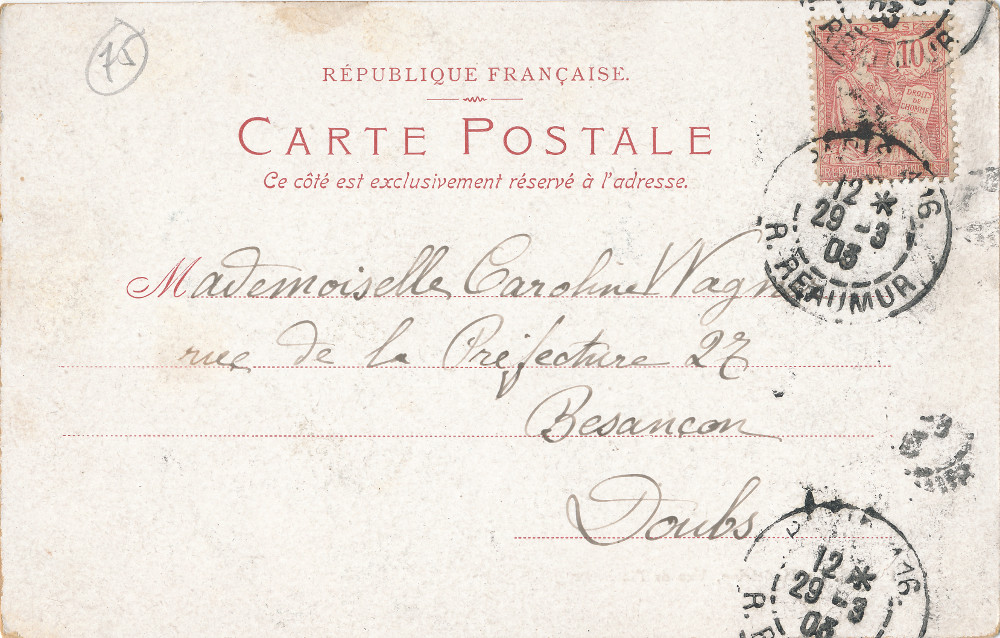 75
RÉPUBLIQUE FRANÇAISE.
CARTE POSTALE
Ce côté est exclusivement réservé à l'adresse.
Mademoiselle Caroline Wagn
rue de la Préfecture 27
Besançon
Doubs
POSTES
10
DROITS
DE
L'HOMME
REPUBLIQUE FRANÇAISE
03
PARIS 116.
12 *
29 -3
03
R. REAUMUR
PARIS 116.
12 *
29 -3
03
R. R